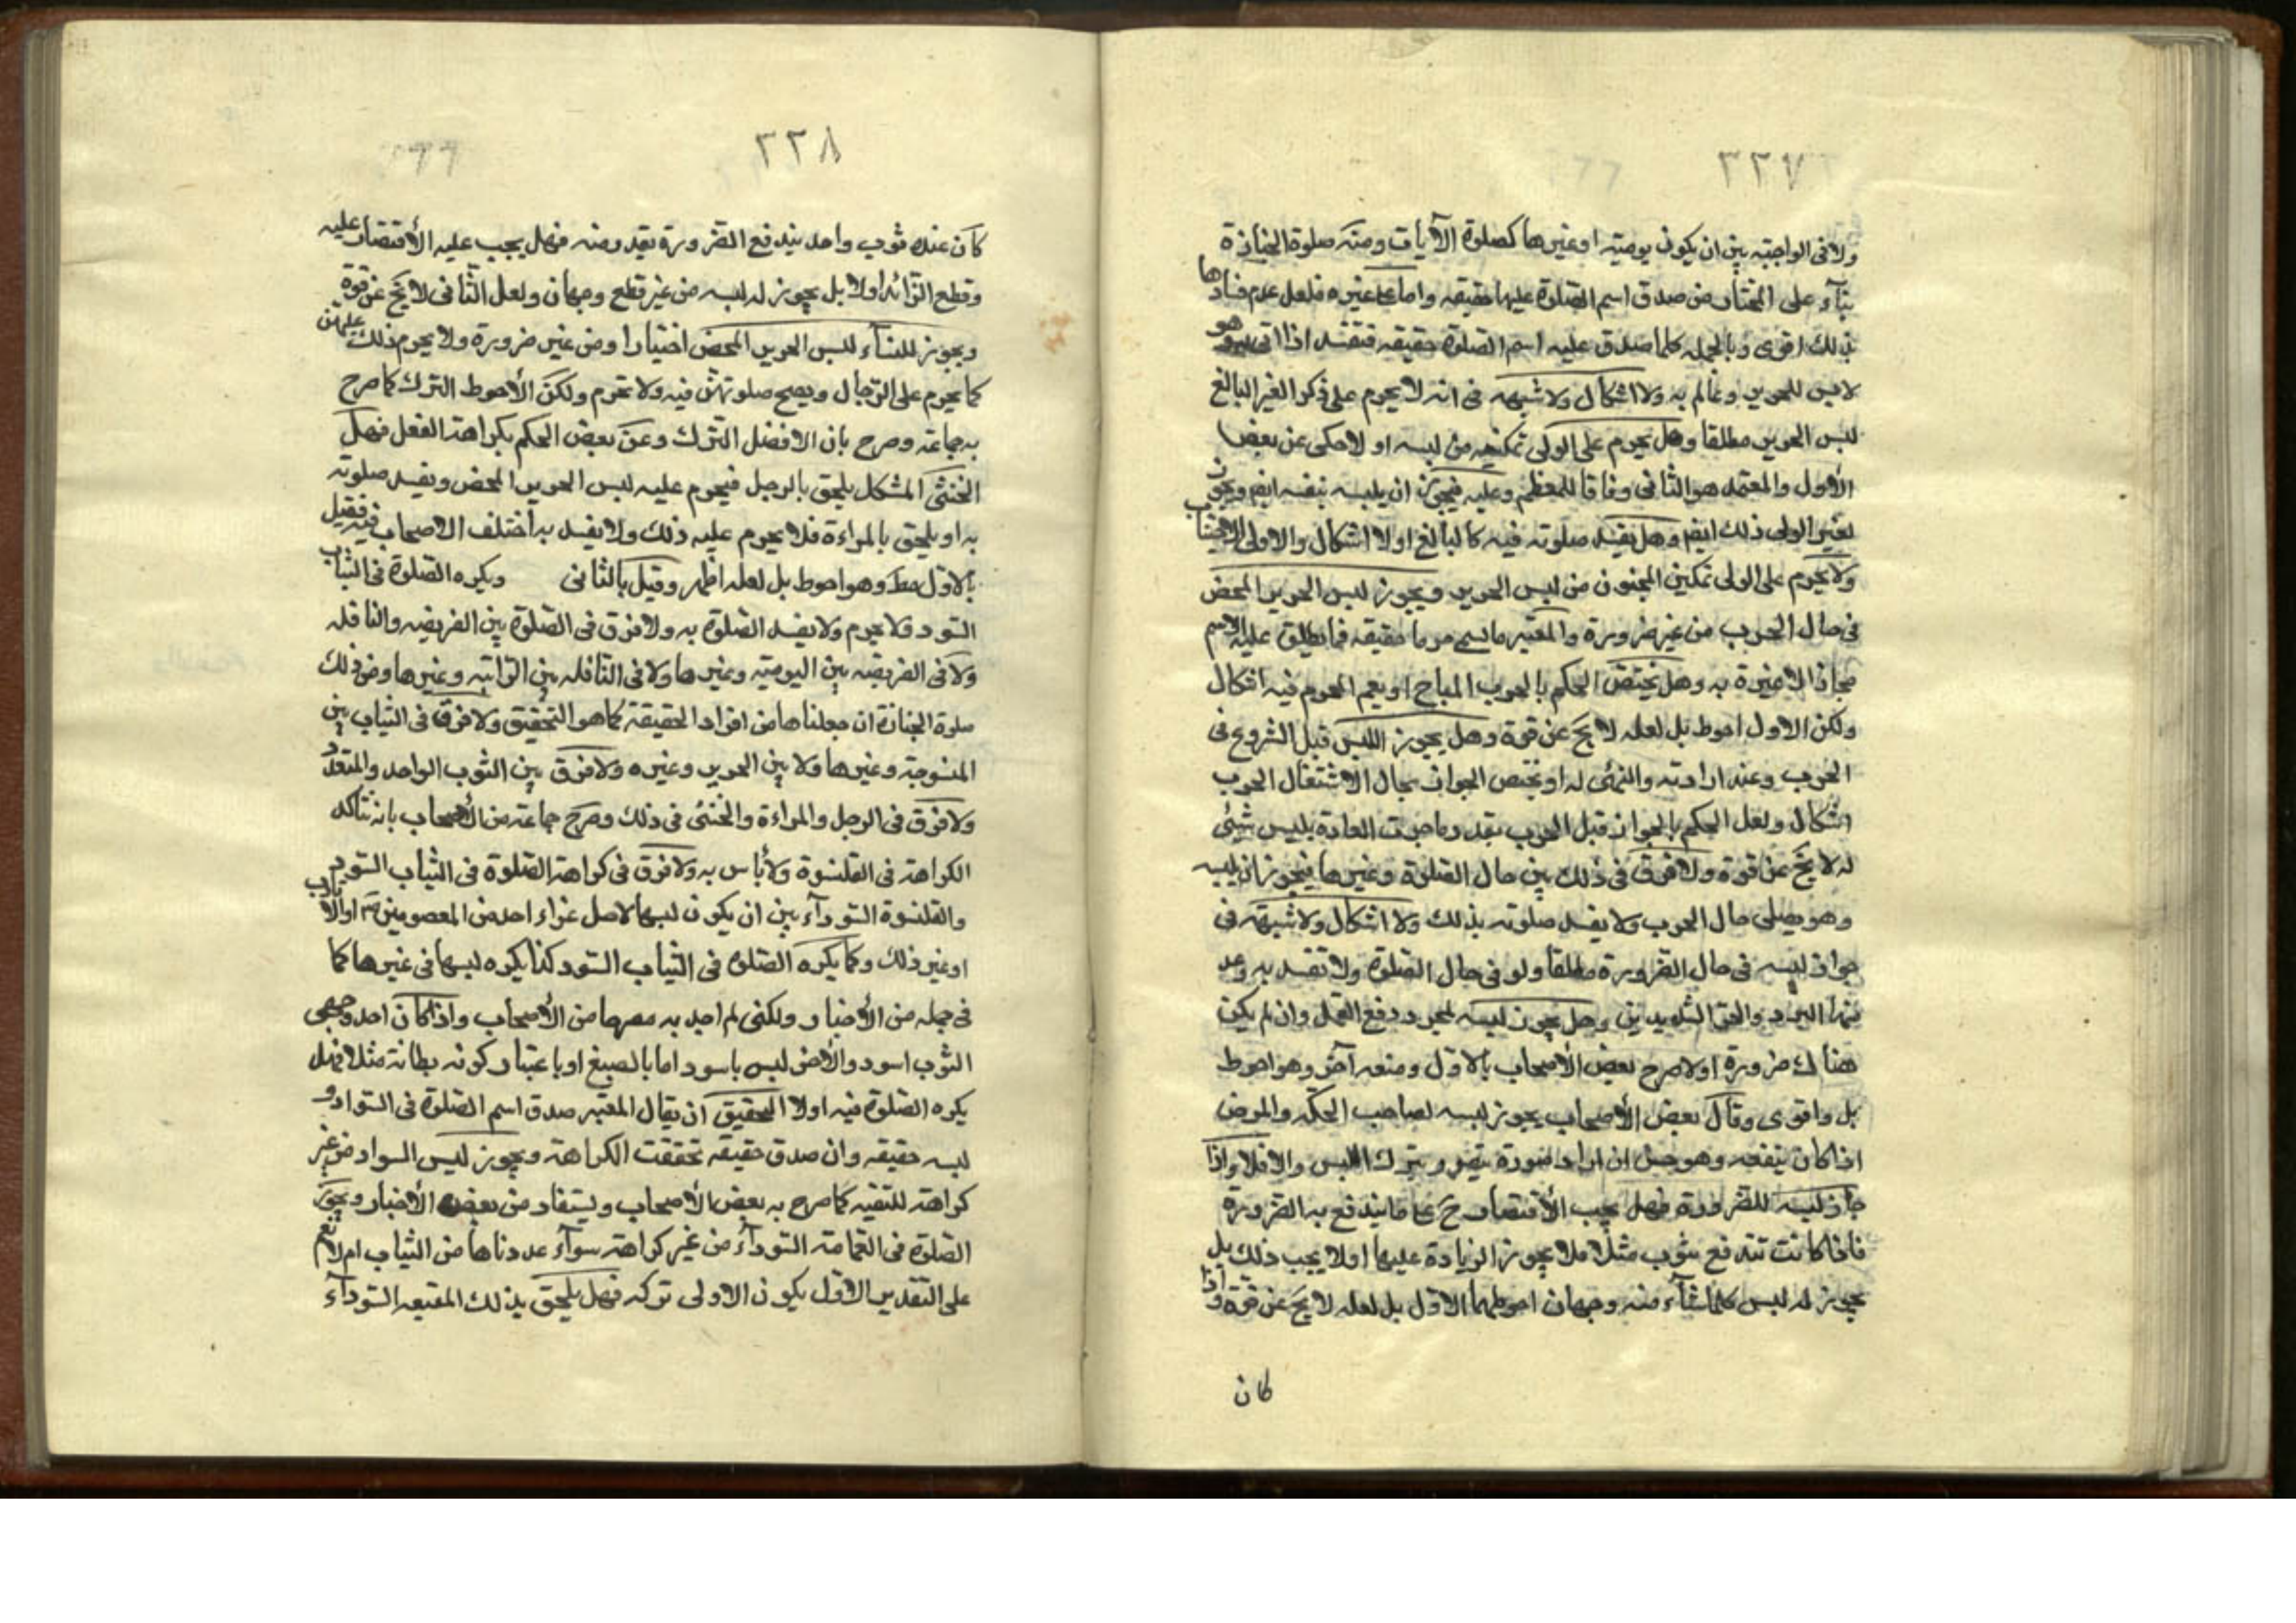 ٣٣٧
ولا فى الواجبة بين ان يكون يومية او غيرها كصلوة الآيات ومنه صلوة الجنازة
بناء على المختار من صدق اسم الصلوة عليها حقيقه واما على غيره فلعل عدم فسادها
بذلك اقوى وبالجمله كلما صدق عليه اسم الصلوة حقيقه فتفسد اذا اتى به وهو
لابس للحرير وعالم به ولا اشكال ولا شبهه فى انه لا يحرم على ذكر الغير البالغ
لبس الحرير مطلقا وهل يحرم على الولى تمكينه من لبسه او لا حكى عن بعض
الأول والمعتمد هو الثانى وفاقا للمعظم وعليه فيجوز ان يلبسه بنفسه ايضا ويجوز
لغير الولى ذلك ايضا وهل يفسد صلوته فيه كالبالغ او لا اشكال والاولى الاجتناب
ولا يحرم على الولى تمكين المجنون من لبس الحرير ويجوز لبس الحرير المحض
فى حال الحرب من غير ضرورة والمعتبر ما يسمى حربا حقيقه فما يطلق عليه الاسم
مجازا لا عبرة به وهل يختص الحكم بالحرب المباح او يعم المحرم فيه اشكال
ولكن الاول احوط بل لعله لا يخ عن قوة وهل يجوز اللبس قبل الشروع فى
الحرب وعند ارادته والتهيئ له او يختص الجواز بحال الاشتغال الحرب
اشكال ولعل الحكم بالجواز قبل الحرب بقدر ما جرت العادة بلبس شيئ
له لا يخ عن قوة ولا فرق فى ذلك بين حال الصلوة وغيرها فيجوز ان يلبسه
وهو يصلى حال الحرب ولا يفسد صلوته بذلك ولا اشكال ولا شبهة فى
جواز لبسه فى حال الضرورة مطلقا ولو فى حال الصلوة ولا تفسد به وعد
منها البرد والحر الشديدين وهل يجوز لبسه لمجرد دفع القمل وان لم يكن
هناك ضرورة او لا صرح بعض الأصحاب بالاول ومنعه آخر وهو احوط
بل واقوى وقال بعض الأصحاب يجوز لبسه لصاحب الحكه والمرض
اذا كان ينفعه وهو حسن ان اراد صورة تضرر بترك اللبس والا فلا واذا
جاز لبسه للضرورة فهل يجب الأقتصار ح على ما يندفع به الضرورة
فاذا كانت تندفع بثوب مثلا فلا يجوز الزيادة عليها او لا يجب ذلك بل
يجوز له لبس كلما شاء منه وجهان احوطهما الاول بل لعله لا يخ عن قوة واذا
كان
٣٣٨
كان عنده ثوب واحد يندفع الضرورة بقدر منه فهل يجب عليه الأقتصار عليه
وقطع الزائد او لا بل يجوز له لبسه من غير قطع وجهان ولعل الثانى لا يخ عن قوة
ويجوز للنساء لبس الحرير المحض اختيارا ومن غير ضرورة ولا يحرم ذلك عليهن
كما يحرم على الرجال ويصح صلوتهن فيه ولا تحرم ولكن الأحوط الترك كما صرح
به جماعة وصرح بان الافضل الترك وعن بعض الحكم بكراهة الفعل فهل
الخنثى المشكل يلحق بالرجل فيحرم عليه لبس الحرير المحض ويفسد صلوته
به او يلحق بالمراءة فلا يحرم عليه ذلك ولا يفسد به اختلف الاصحاب فيه فقيل
بالاول مط وهو احوط بل لعله اظهر وقيل بالثانى ويكره الصلوة فى الثياب
السود ولا يحرم ولا يفسد الصلوة به ولا فرق فى الصلوة بين الفريضه والنافله
ولا فى الفريضه بين اليومية وغيرها ولا فى النافله بين الراتبه وغيرها ومن ذلك
صلوة الجنازة ان جعلناها من افراد الحقيقة كما هو التحقيق ولا فرق فى الثياب بين
المنسوجة وغيرها ولا بين الحرير وغيره ولا فرق بين الثوب الواحد والمتعدد
ولا فرق فى الرجل والمراءة والخنثى فى ذلك وصرح جماعة من الأصحاب بانه تتاكد
الكراهة فى القلنسوة ولا بأس به ولا فرق فى كراهة الصلوة فى الثياب السود
والقلنسوة السوداء بين ان يكون لبسها لاصل عزاء احد من المعصومين او الاقارب
او غير ذلك وكما يكره الصلوة فى الثياب السود كذا يكره لبسها فى غيرها كما
فى جمله من الأخبار ولكنى لم اجد به مصرحا من الأصحاب واذا كان احد وجهى
الثوب اسود والأخر ليس باسود اما بالصبغ او باعتبار كونه بطانة مثلا فهل
يكره الصلوة فيه او لا التحقيق ان يقال المعتبر صدق اسم الصلوة فى السواد و
لبسه حقيقه وان صدق حقيقه تحققت الكراهة ويجوز لبس السواد من غير
كراهة للتقيه كما صرح به بعض الأصحاب ويستفاد من بعض الأخبار ويجوز
الصلوة فى العمامة السوداء من غير كراهة سواء عددناها من الثياب ام لا نعم
على التقدير الاول يكون الاولى تركه فهل يلحق بذلك المقنعه السوداء